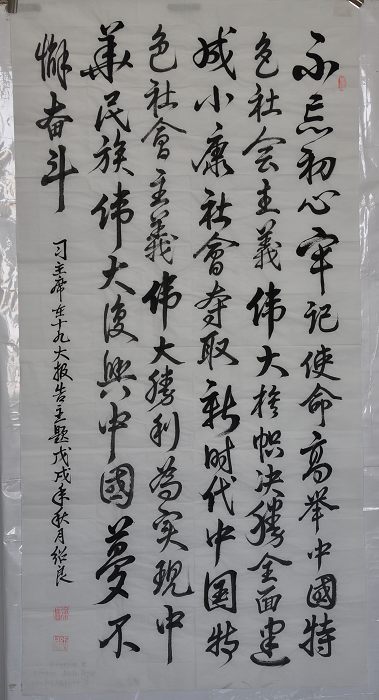 不忘初心牢记使命高举中國特
色社会主義伟大旗帜决勝全面建
成小康社會夺取新时代中国特
色社會主義伟大勝利為实現中
華民族伟大復興中國夢不
懈奋斗
习主席在十九大报告主题戊戌年秋月绍良